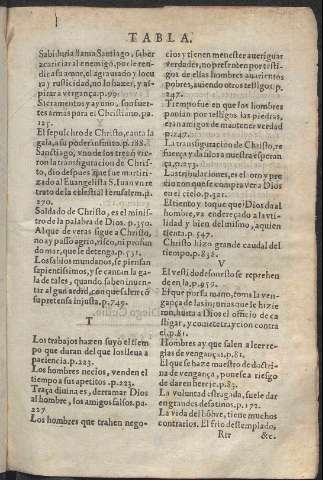 TABLA.
Sabiduria llama Santiago, saber
acariciar al enemigo, por le ren-
dir a su amor, el agrauado y locu
ra y rusticidad, no lo hazer, y as-
pirar a vengança. p. 99.
Sacramentos y ayuno, son fuer-
tes armas para el Christiano. pa.
125.
El sepulchro de Christo, canta la
gala, a su poder infinito. p. 188.
Santiago, vno de los tres que vie-
ron la transfiguracion de Chris-
to, dio despues que fue martiri-
zado al Euangelista S. Iuan vn re
trato de la celestial Ierusalem. p.
270.
Soldado de Christo, es el minis-
tro de la palabra de Dios. p. 350.
Al que de veras sigue a Christo,
no ay passo agrio, risco, ni profun
do mar, que le detenga. p. 531.
Los sabios mundanos, se piensan
sapientissimos, y se cantan la ga-
la de tales, quando saben inuen-
tar algun ardid, con que salir cõ
su pretensa injusta. p. 749.
T
Los trabajos hazen suyo el tiem
po que duran del que los lleua a
paciencia. p. 223.
Los hombres necios, venden el
tiempo a sus apetitos. p. 223.
Traça diuina es, derramar Dios
al hombre, los amigos falsos. pa.
227
Los hombres que trahen nego-
cios y tienen menester aueriguar
verdades, no presenten por testi-
gos de ellas hombres auarientos
pobres, auiendo otros testigos. p.
247.
Tiempo fue en que los hombres
ponian por testigos las piedras,
eran amigos de mantener verdad
p. 247.
La transfiguracion de Christo, re
fuerça y da
p. 273.
Las tribulaciones, es el oro y pre
cio con que se compra ver a Dios
en el cielo, p. 321.
El tiento y toque que Dios da al
hombre, va endereçado a la vti-
lidad y bien del mismo, aquien
tienta. p. 547.
Christo hizo grande caudal del
tiempo. p. 832.
V
El vestido de sonrisfo se reprehen
den la, p. 959.
El que por su mano, toma la ven-
gança de las injurias que le hizie
ron, hurta a Dios el officio de ca
stigar, y comete traycion contra
el. p. 81.
Hombres ay que salen al cerre-
glas de venganças. p. 81.
El que se haze maestro de doctri-
na de vengança, ponese a riesgo
de dar en hereje. p. 83.
La voluntad estragada, suele dar
en grandes desatinos. p. 172.
La vida del hõbre, tiene muchos
contrarios. El frio destemplado,
Rrr &c.